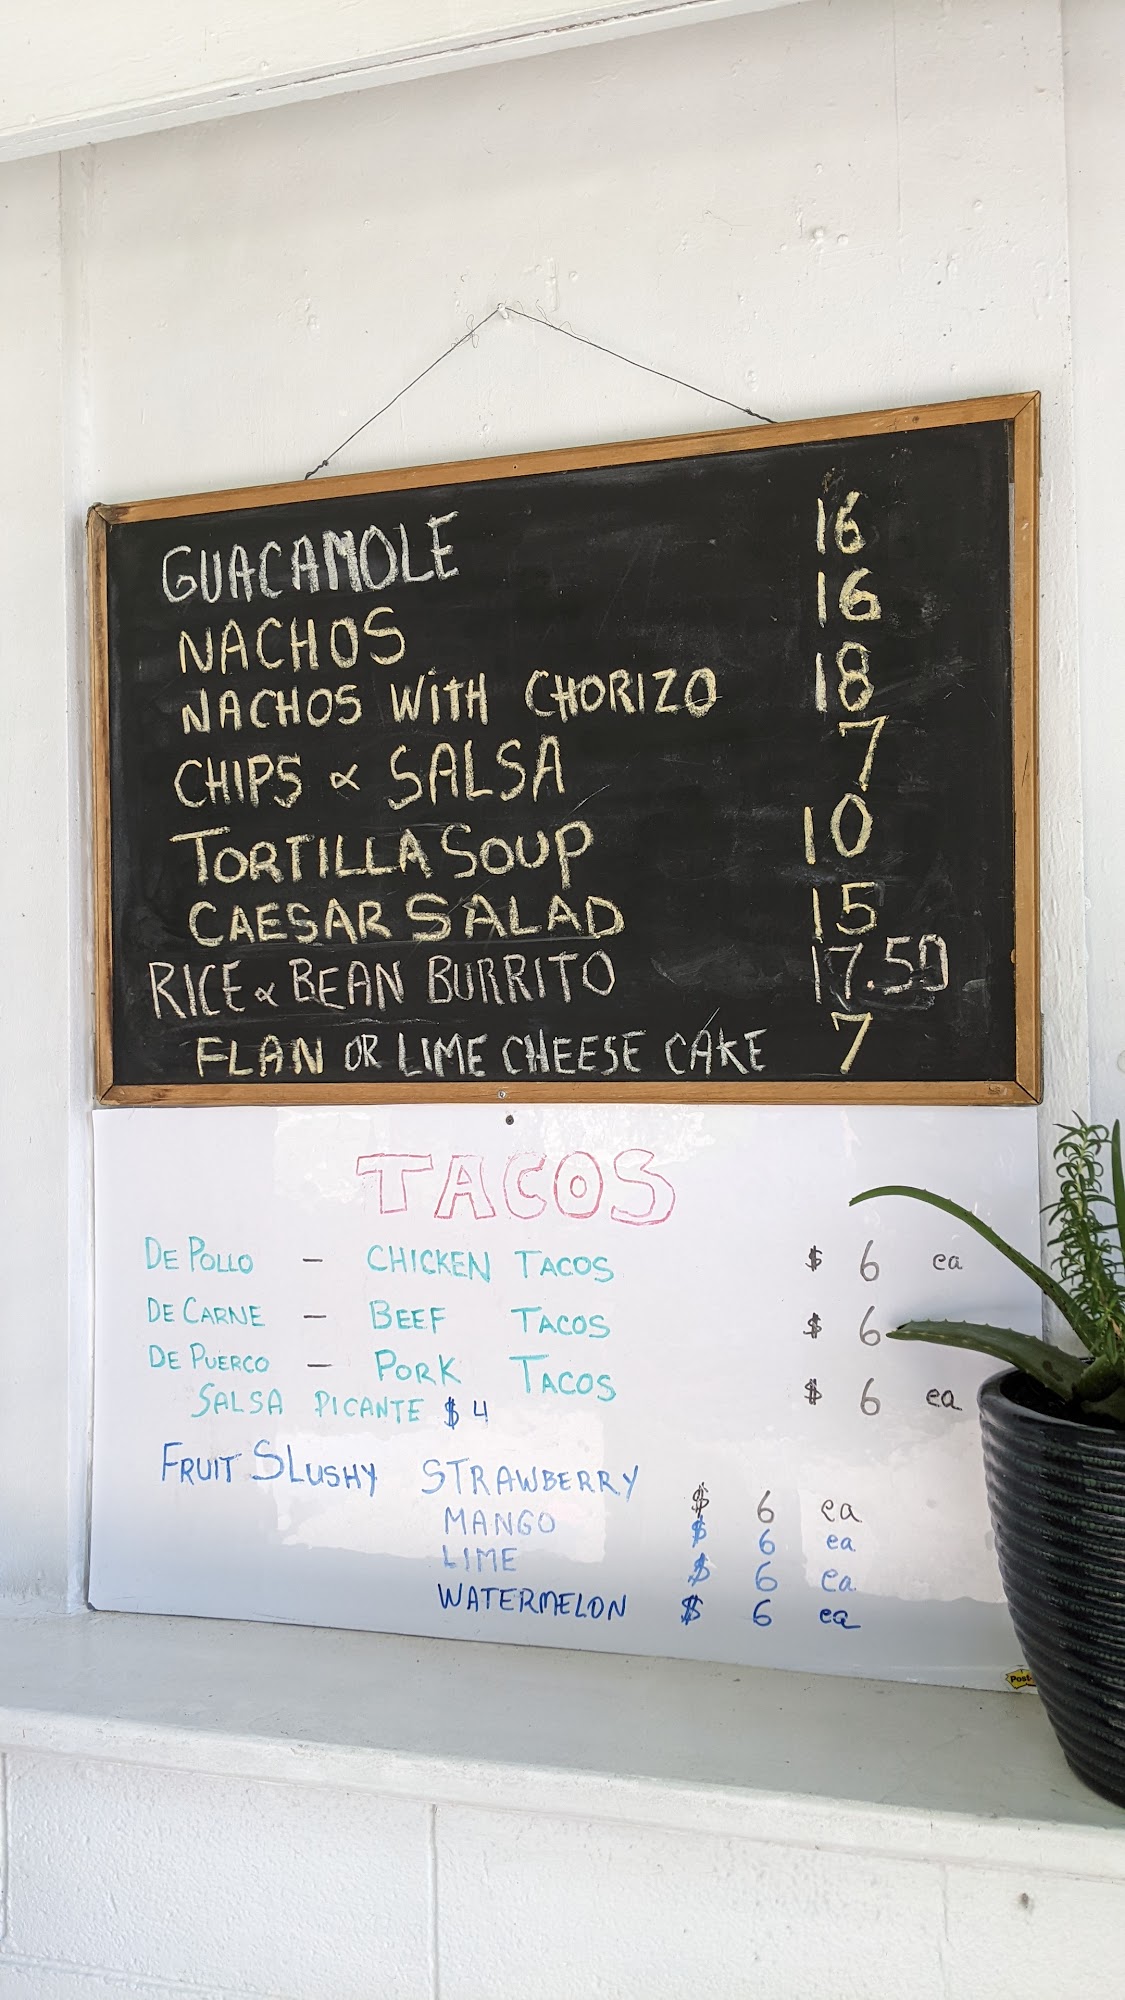 GUACAMOLE 16
NACHOS 16
NACHOS WITH CHORIZO 18
CHIPS & SALSA 7
TORTILLA SOUP 10
CAESAR SALAD 15
RICE & BEAN BURRITO 17.50
FLAN OR LIME CHEESE CAKE 7
TACOS
DE POLLO - CHICKEN TACOS $ 6 ea
DE CARNE - BEEF TACOS $ 6
DE PUERCO - PORK TACOS $ 6 ea
SALSA PICANTE $4
FRUIT SLUSHY STRAWBERRY $ 6 ea
MANGO $ 6 ea
LIME $ 6 ea
WATERMELON $ 6 ea
Post-